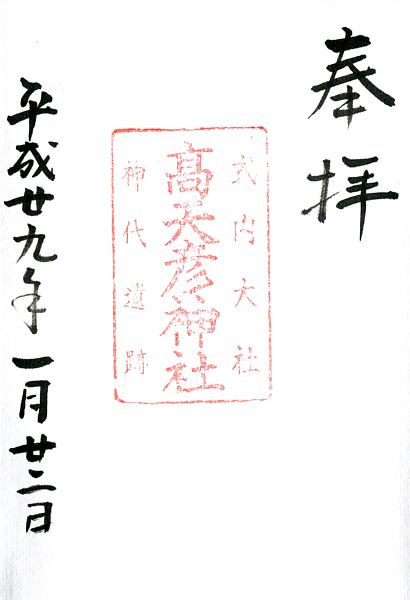 奉拝
式内大社
高天彦神社
神代遺跡
平成廿九年一月廿二日